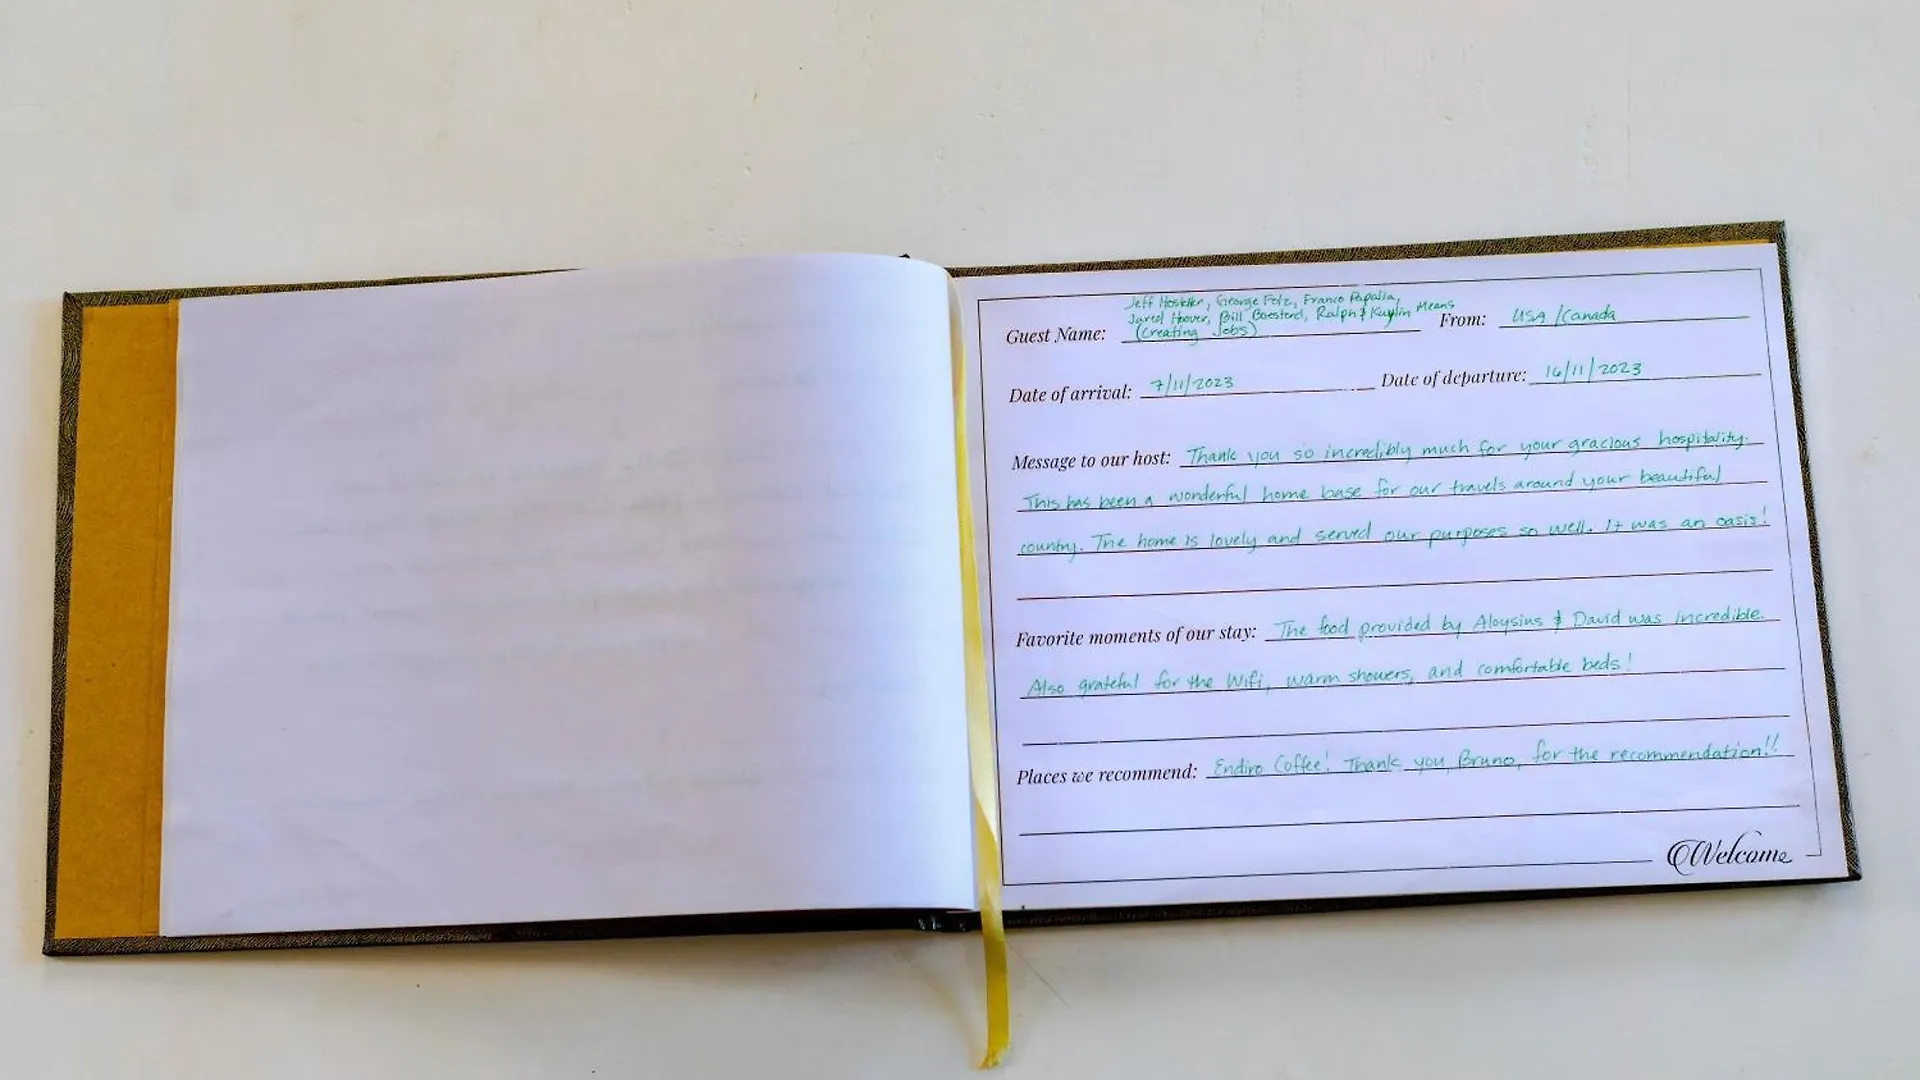 Jeff Hostetter, George Felz, Franco Papalia,
Jared Hoover, Bill Boesterd, Ralph & Kaylin Means
Guest Name: (Creating Jobs) From: USA/Canada
Date of arrival: 7/11/2023 Date of departure: 16/11/2023
Message to our host: Thank you so incredibly much for your gracious hospitality.
This has been a wonderful home base for our travels around your beautiful
country. The home is lovely and served our purposes so well. It was an oasis!
Favorite moments of our stay: The food provided by Aloysius & David was incredible.
Also grateful for the Wifi, warm showers, and comfortable beds!
Places we recommend: Endiro Coffee! Thank you, Bruno, for the recommendation!!
Welcome